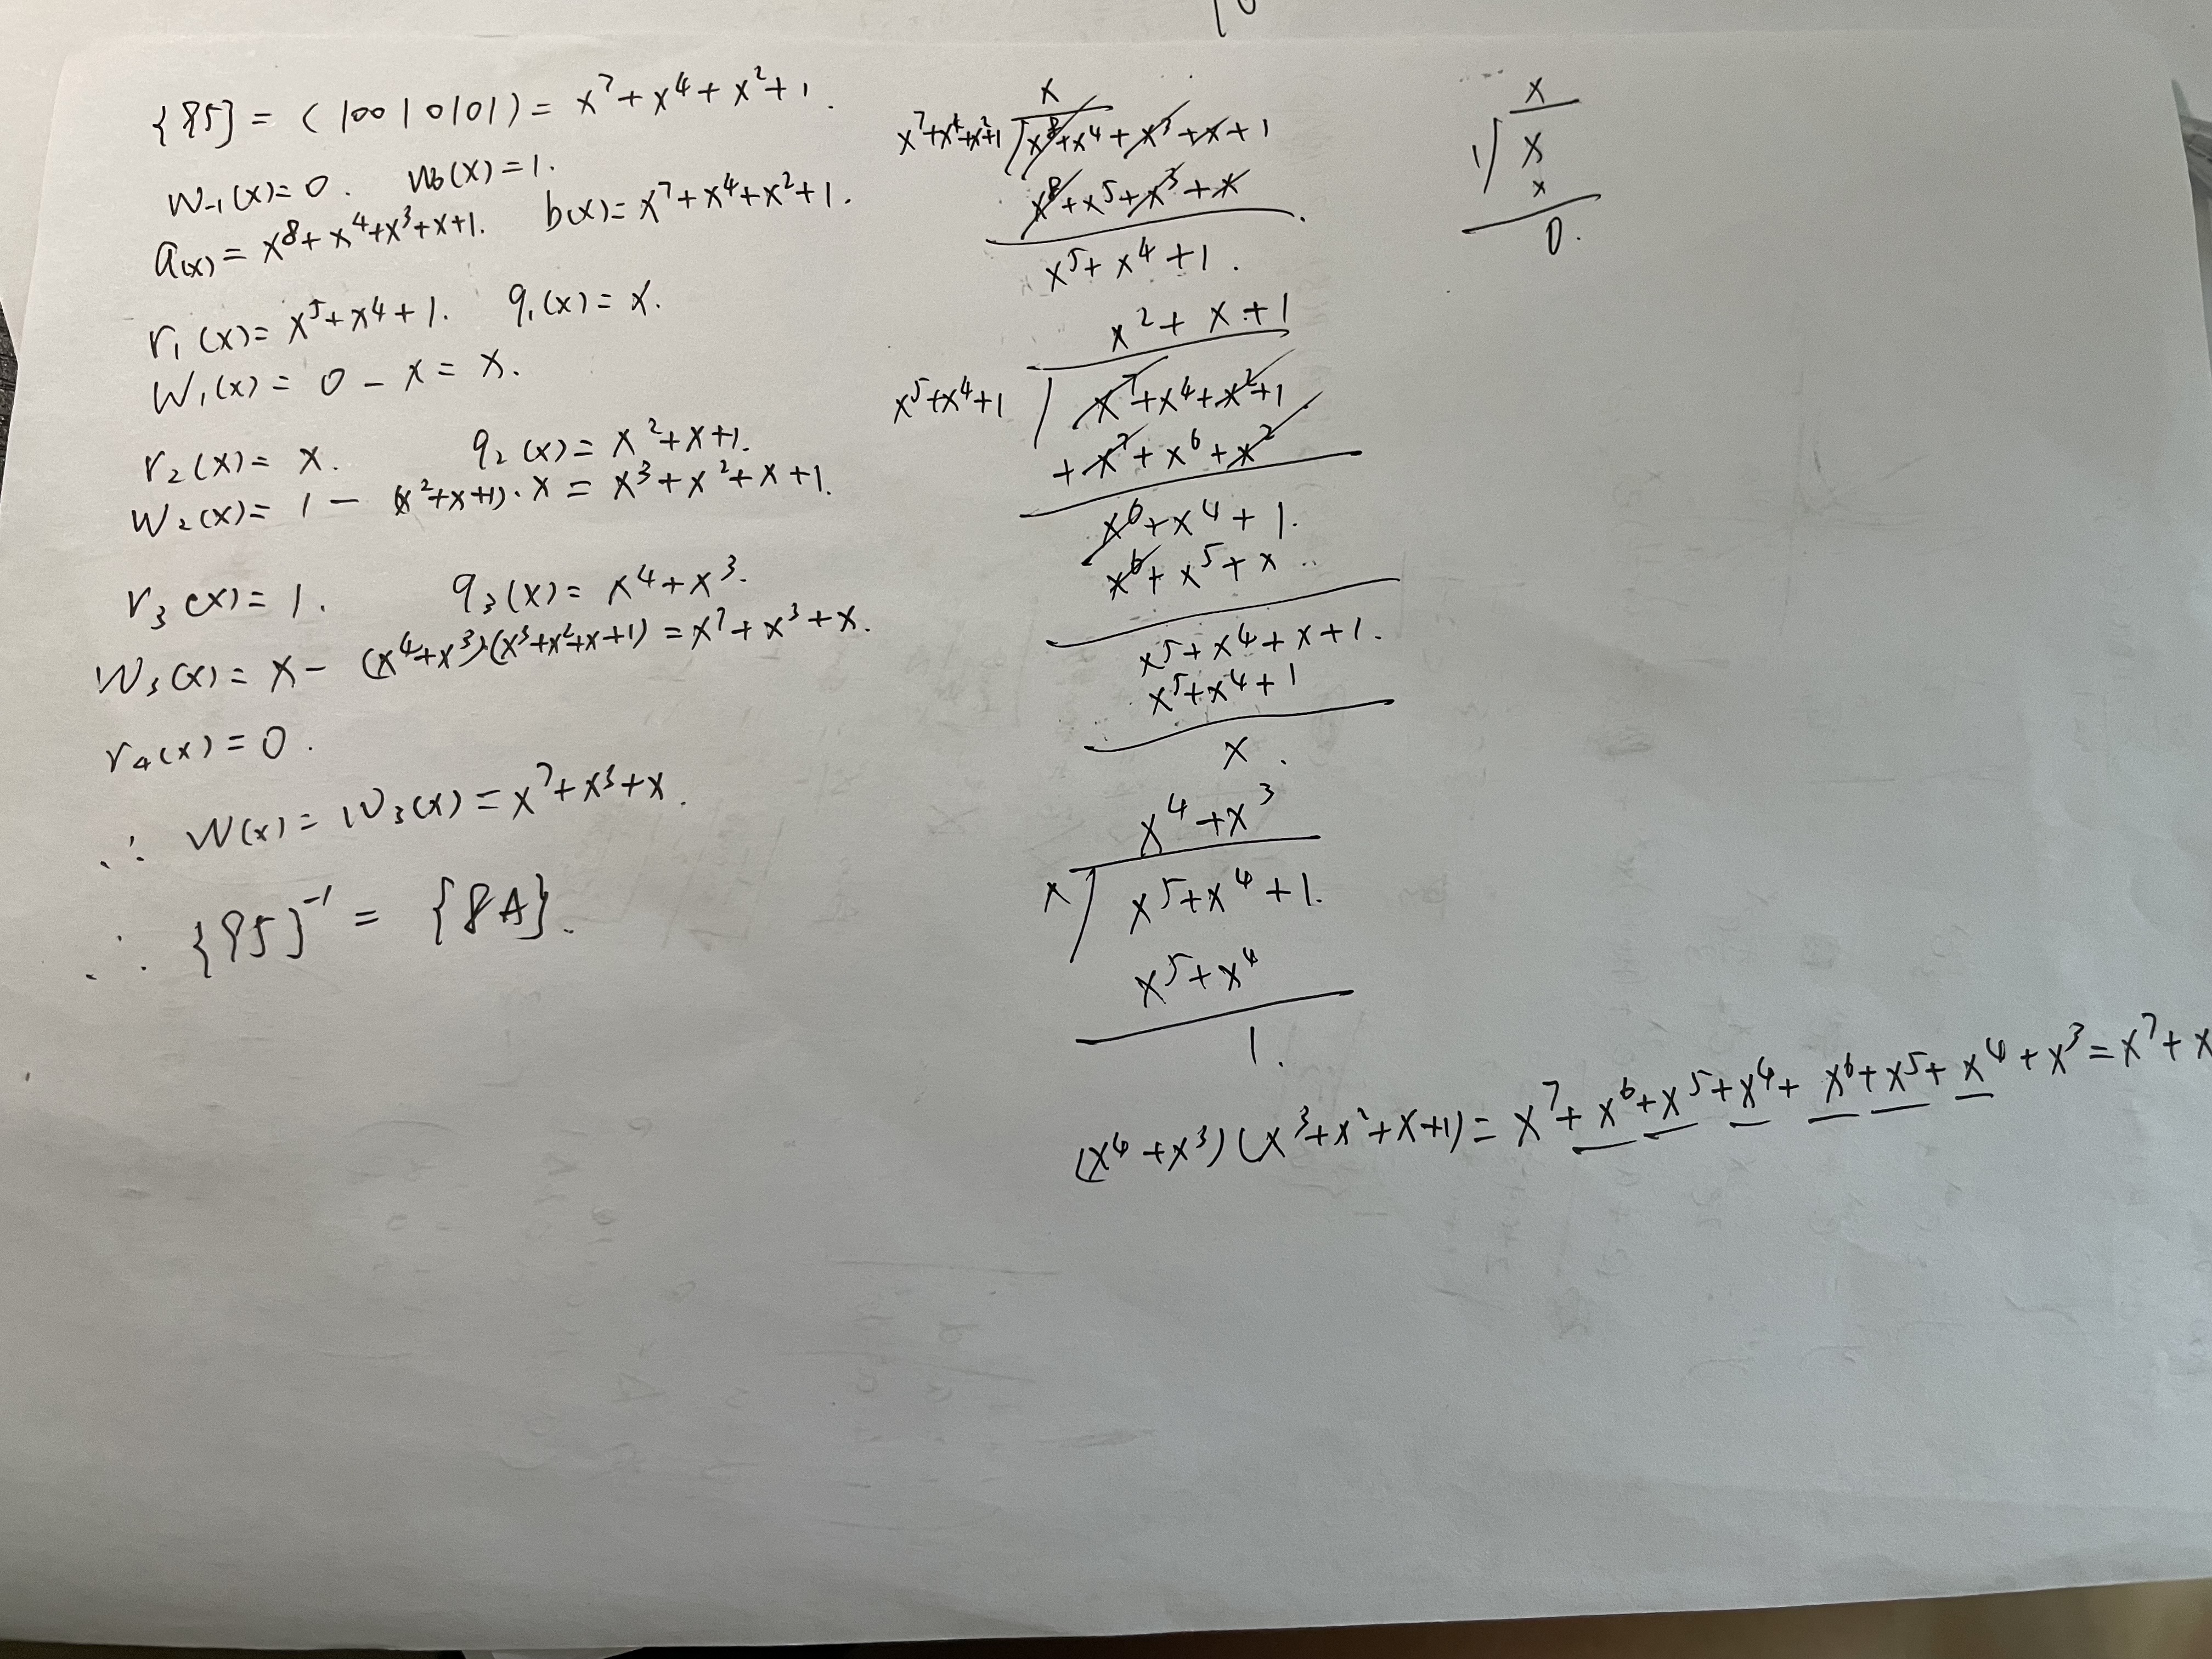 {95} = (10010101) = x⁷+x⁴+x²+1.
W₋₁(x)=0. W₀(x)=1.
a(x) = x⁸+x⁴+x³+x+1. b(x)=x⁷+x⁴+x²+1.
r₁(x)= x⁵+x⁴+1. q₁(x)=x.
W₁(x) = 0 - x = x.
r₂(x)= x. q₂(x)= x²+x+1.
W₂(x)= 1 - (x²+x+1)·x = x³+x²+x+1.
r₃(x)=1. q₃(x)= x⁴+x³.
W₃(x) = x - (x⁴+x³)·(x³+x²+x+1) = x⁷+x³+x.
r₄(x)=0.
∴ W(x) = W₃(x) = x⁷+x³+x.
∴ {95}⁻¹ = {8A}.
x
x⁷+x⁴+x²+1 x⁸+x⁴+x³+x+1
x⁸+x⁵+x³+x
x⁵+x⁴+1.
x²+x+1
x⁵+x⁴+1 x⁷+x⁴+x²+1
+x⁷+x⁶+x²
x⁶+x⁴+1.
x⁶+x⁵+x
x⁵+x⁴+x+1.
x⁵+x⁴+1
x.
x⁴+x³
x x⁵+x⁴+1.
x⁵+x⁴
1.
(x⁴+x³)(x³+x²+x+1) = x⁷+x⁶+x⁵+x⁴+x⁶+x⁵+x⁴+x³=x⁷+x
x
1 x
x
0.